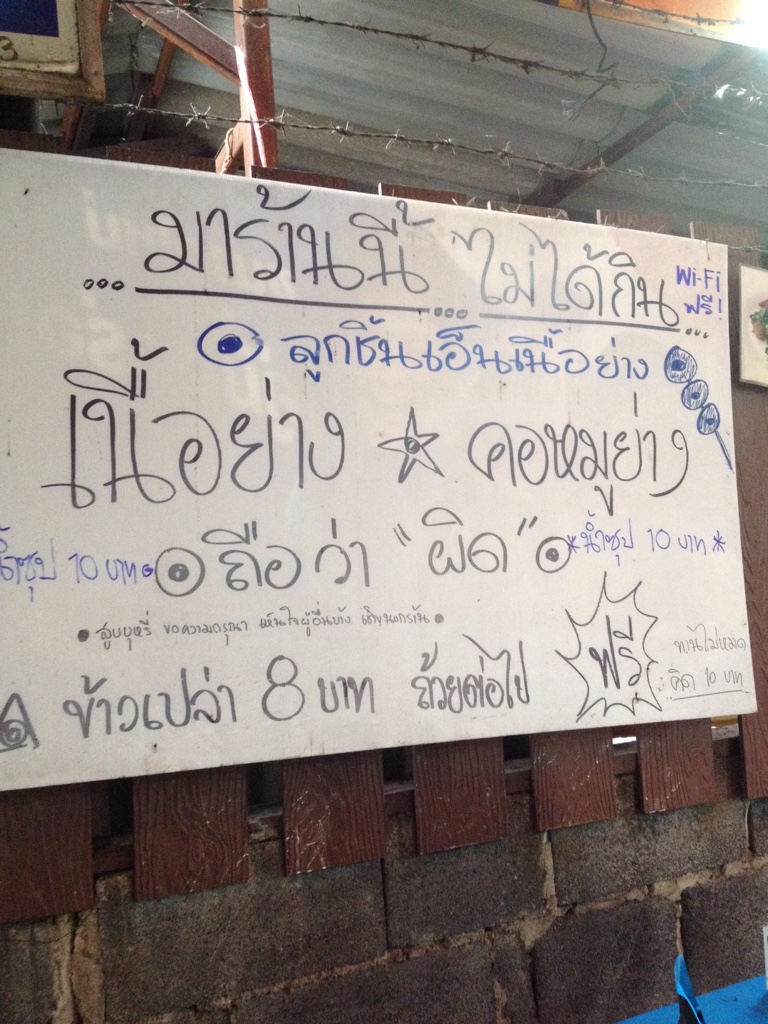 3
...มาร้านนี้... ...ไม่ได้กิน...
Wi-Fi
ฟรี!
ลูกชิ้นเอ็นเนื้อย่าง
เนื้อย่าง คอหมูย่าง
น้ำซุป 10 บาท ถือว่า "ผิด" *น้ำซุป 10 บาท*
สูบบุหรี่ ขอความกรุณา เห็นใจผู้อื่นบ้าง เชิญนอกร้าน
ข้าวเปล่า 8 บาท ถ้วยต่อไป ฟรี
ทานไม่หมด
คิด 10 บาท